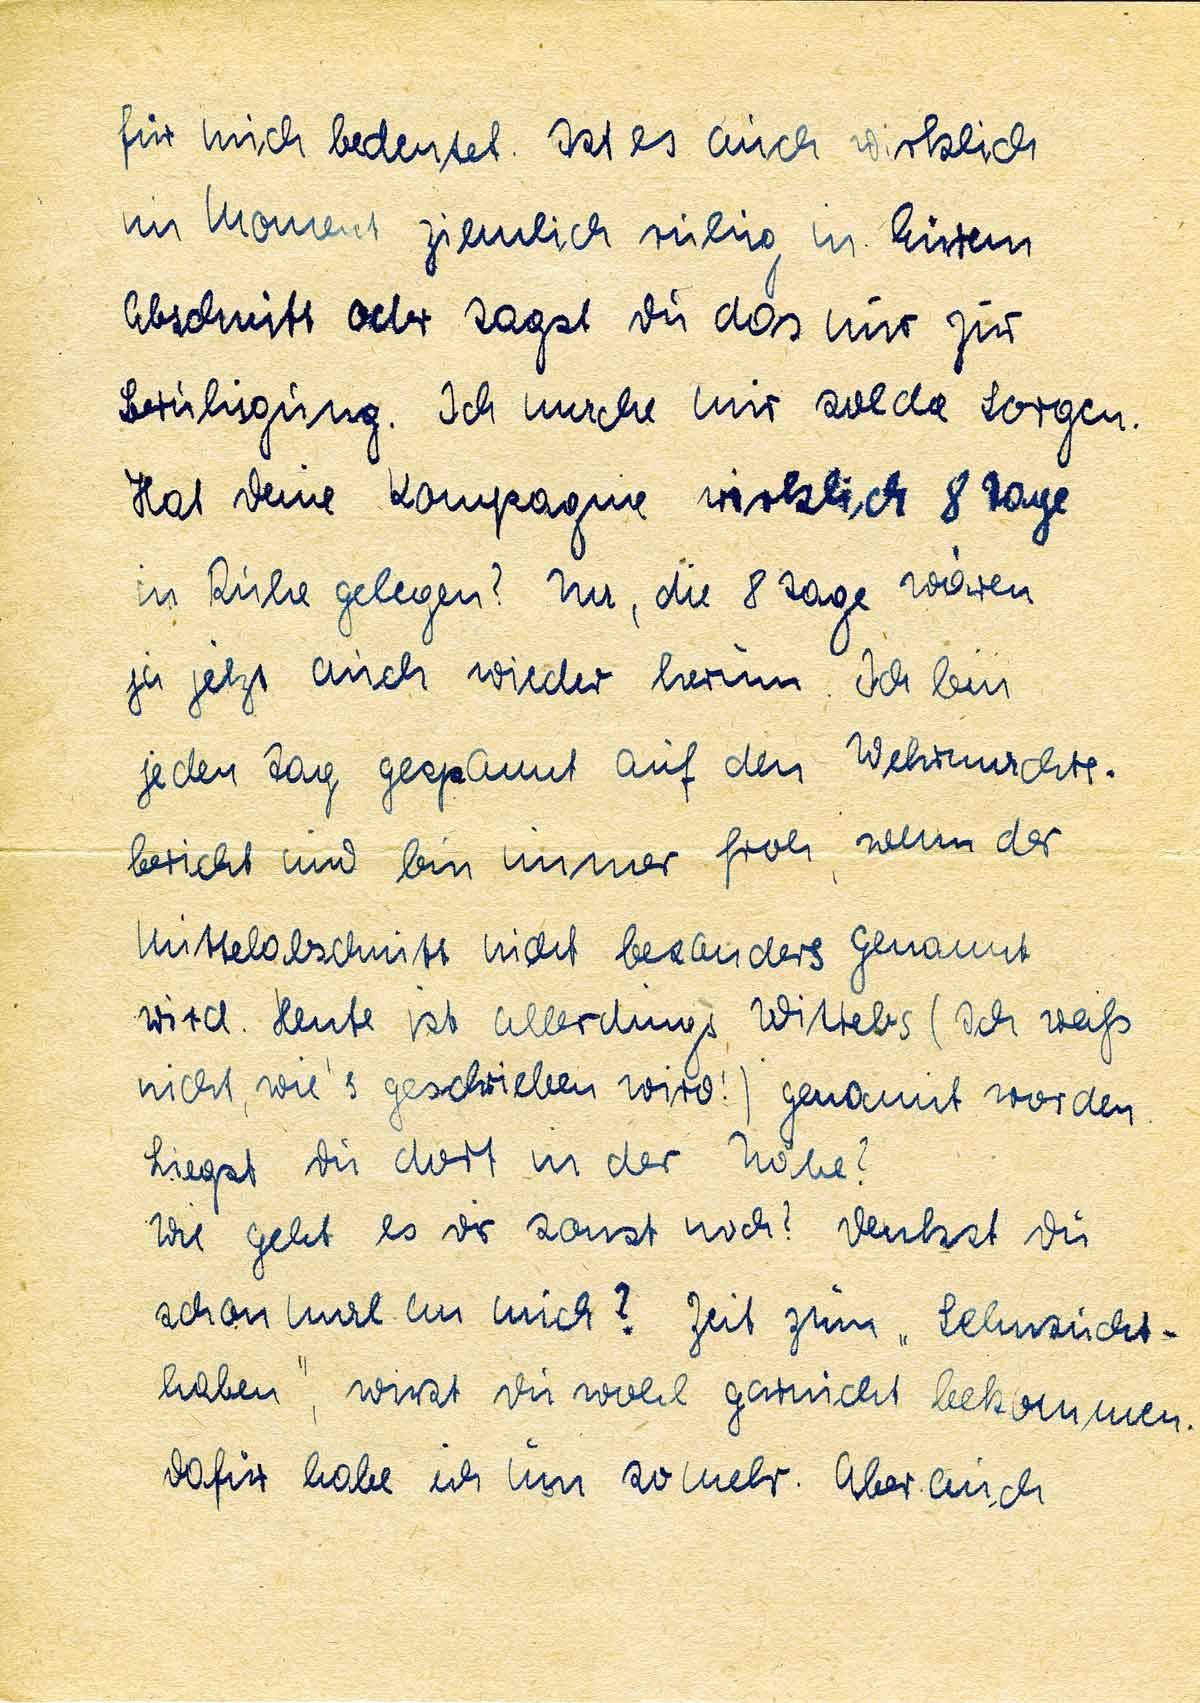 für mich bedeutet. Ist es auch wirklich
im Moment ziemlich ruhig in Eurem
Abschnitt oder sagst Du das nur zur
Beruhigung. Ich mache mir solche Sorgen.
Hat Deine Kompagnie wirklich 8 Tage
in Ruhe gelegen? Na, die 8 Tage wären
ja jetzt auch wieder herum. Ich bin
jeden Tag gespannt auf den Wehrmachts-
bericht und bin immer froh, wenn der
Mittelabschnitt nicht besonders genannt
wird. Heute ist allerdings Wittebs (Ich weiß
nicht, wie's geschrieben wird!) genannt worden.
Liegst Du dort in der Nähe?
Wie geht es Dir sonst noch? Denkst Du
schon mal an mich? Zeit zum „Sehnsucht-
haben", wirst Du wohl garnicht bekommen.
Dafür habe ich um so mehr. Aber auch